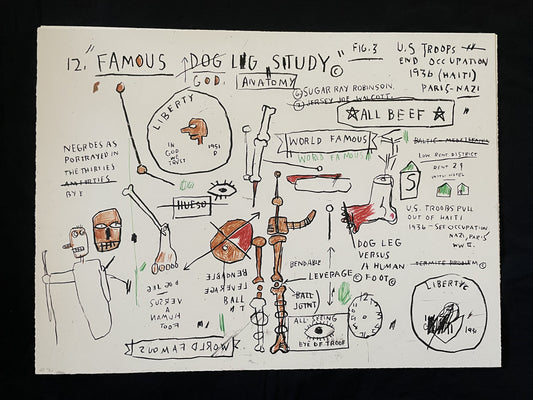 12." FAMOUS DOG LEG STUDY" ©
FIG. 3
U.S TROOPS
END OCCUPATION
1936 (HAITI)
PARIS-NAZI
GOD.
ANATOMY
SUGAR RAY ROBINSON.
JERSEY JOE WALCOTT.
ALL BEEF
LIBERTY
IN
GOD
WE
TRUST
1951
D
WORLD FAMOUS
WORLD FAMOUS
LOW RENT DISTRICT
RENT 21
WITH HOTEL
S
NEGROES AS
PORTRAYED IN
THE THIRTIES
HUESO
U.S. TROOBS PULL
OUT OF HAITI
1936 - SEE OCCUPATION
NAZI, PARIS
WW II.
DOG LEG
VERSUS
A HUMAN
© FOOT ©
TERMITE PROBLEM ©
BENDABLE
LEVERAGE
BALL
JOINT
BENDABLE
LEVERAGE
DOG LEG
VERSUS
A
HUMAN
FOOT
ALL SEEING
EYE OF TROOF
12
LIBERTY
196
WORLD FAMOUS